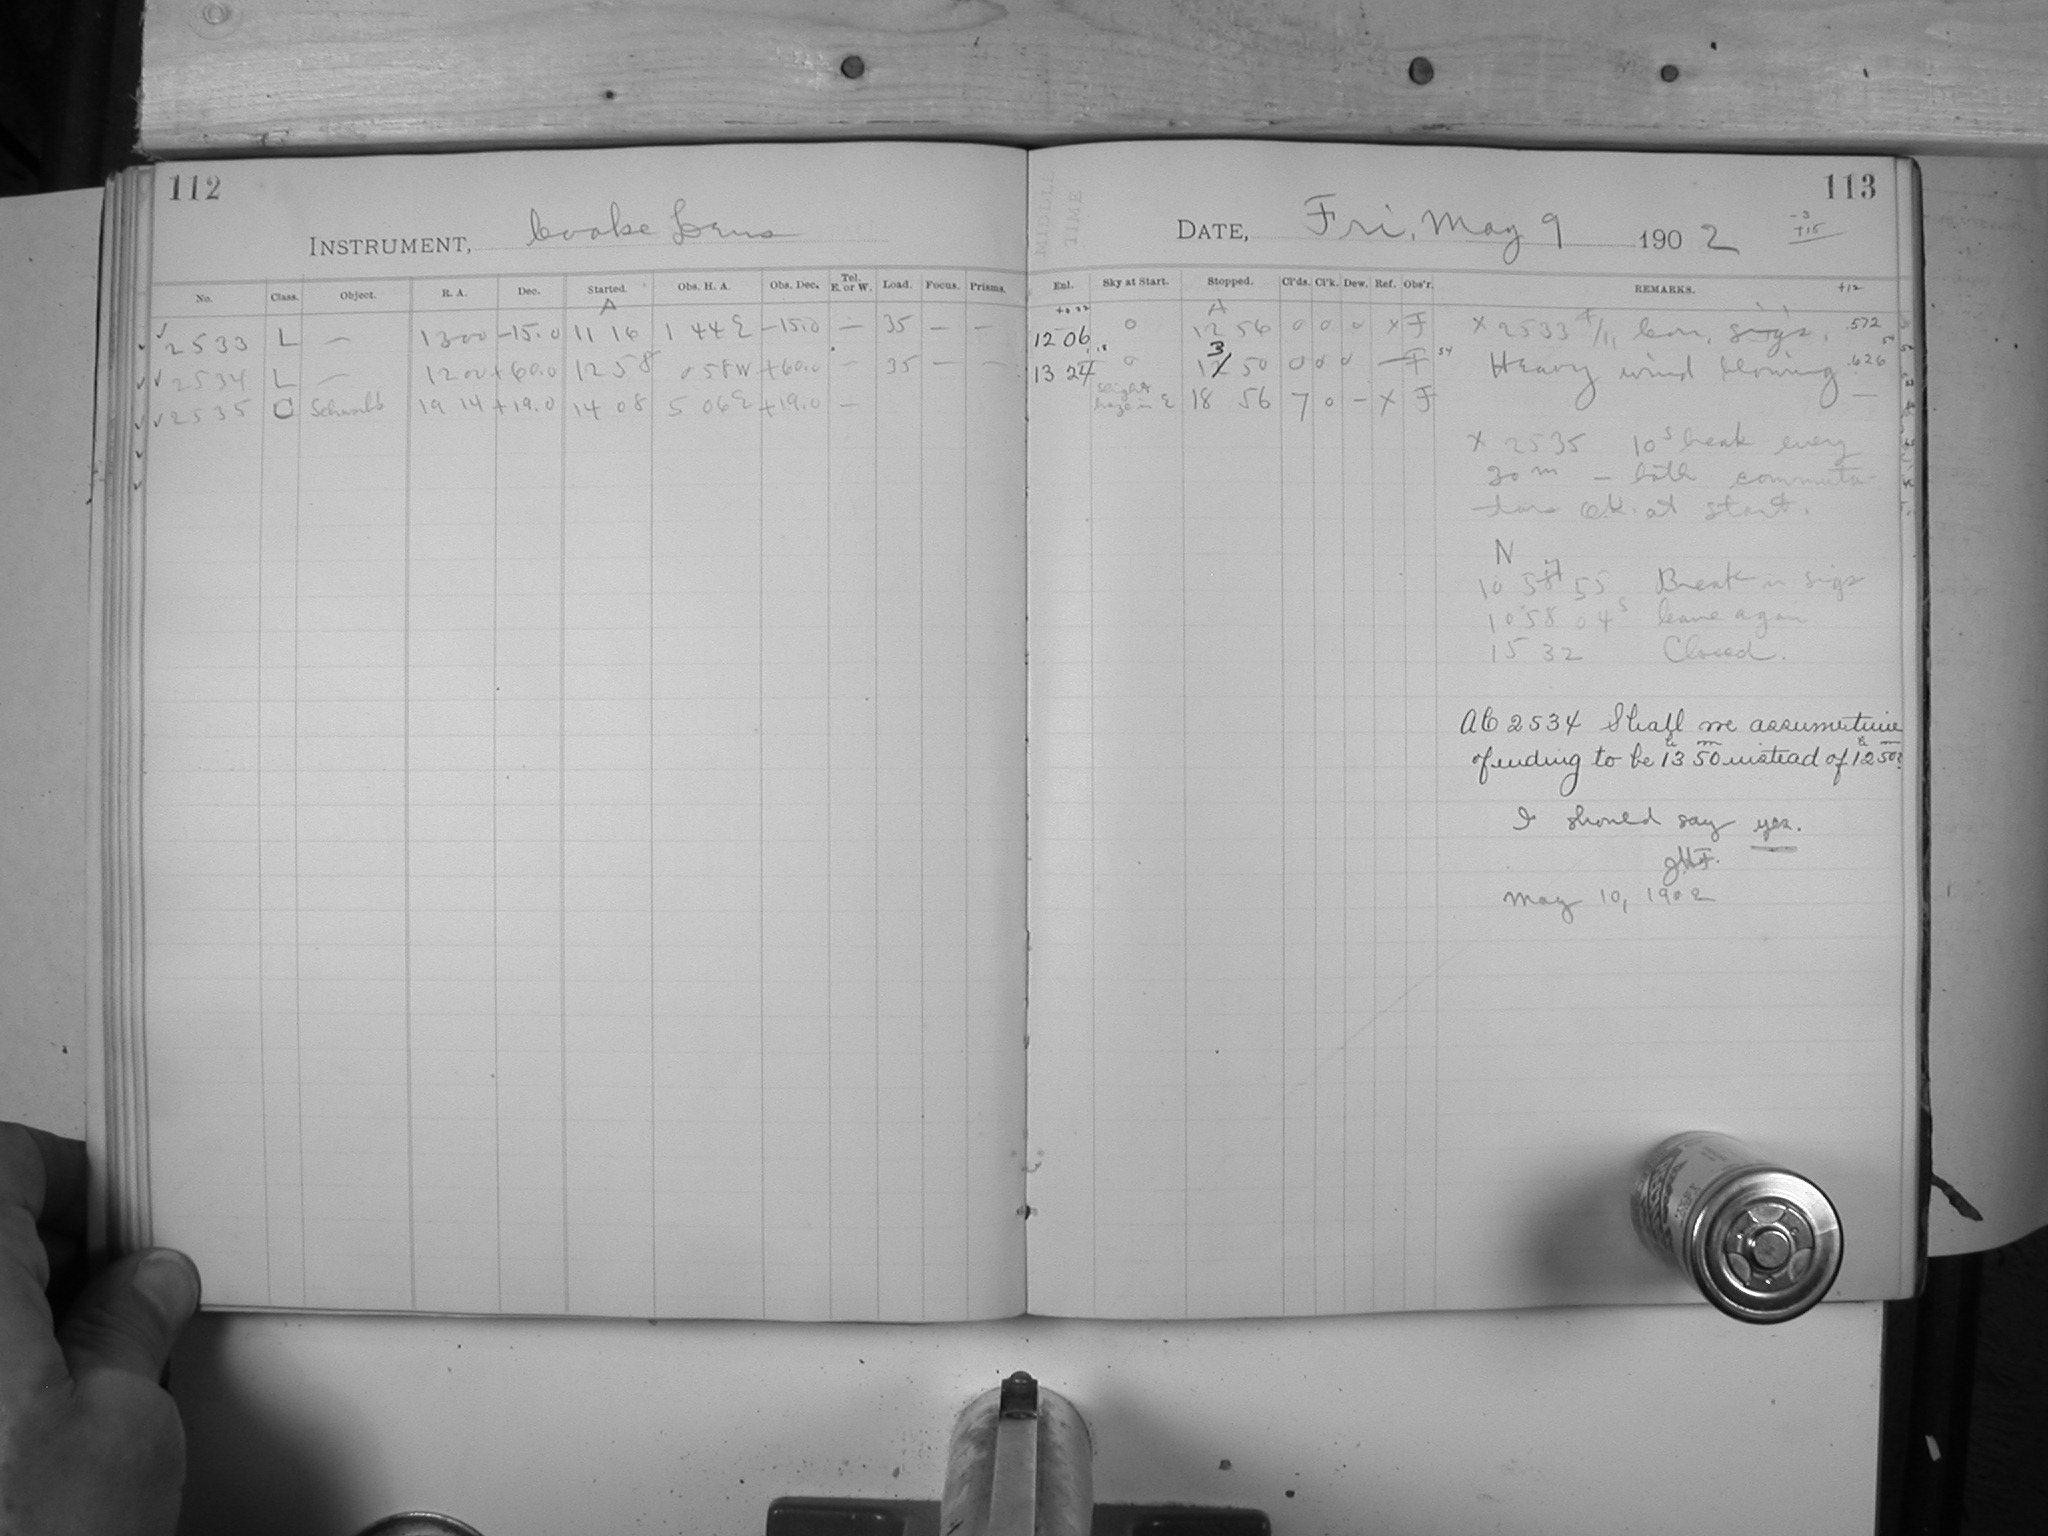 112
INSTRUMENT, Cooke Lens
No. Class. Object. R. A. Dec. Started. Obs. H. A. Obs. Dec. Tel. E. or W. Load. Focus. Prisms.
A
2533 L — 13 00 -15.0 11 16 1 44 E -15.0 — 35 — —
2534 L — 12 00 +60.0 12 58 0 58 W +60.0 — 35 — —
2535 C 19 14 +19.0 14 08 5 06 E +19.0 —
MIDDLE
TIME
113
DATE, Fri. May 9 1902
-3
+15
Enl. Sky at Start. Stopped. Cl'ds. Cl'k. Dew. Ref. Obs'r. REMARKS. +12
A
12 06 0 12 56 0 0 0 x F
3
13 24 0 12 50 0 0 0 — F
slight haze in E 18 56 7 0 — x F
x 2533 sigs. .572
Heavy wind blowing .626
x 2535 10s break every
20 m — both commuta-
tors O.K. at start.
N
10 55 Break in sigs
10 58 04s again
15 32 Closed.
AC 2534 Shall we assume time
of ending to be 13h 50m instead of 12h 50m?
I should say yes.
May 10, 1902